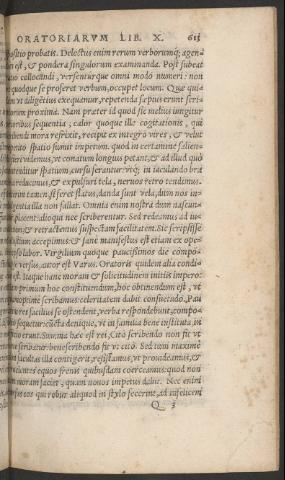 ORATORIARVM LIB. X. 613
positio probatis. Delectus enim rerum verborumq; agen-
dus est, & pondera singulorum examinanda. Post subeat
ratio collocandi, versenturque omni modo numeri: non
quodque se proferet verbum, occupet locum. Quæ qui-
vt diligētius exequamur, repetenda sæpius erunt scri-
proxima. Nam præter id quod sic melius iungūtur
prioribus sequentia, calor quoque ille cogitationis, qui
scribendi mora refrixit, recipit ex integro vires, & velut
repetito spatio sumit impetum. quod in certamine salien-
di fieri videmus, vt conatum longius petant, & ad illud quo
contenditur spatium, cursu ferantur: vtq; in iaculando bra
reducimus, & expulsuri tela, neruos retro tendimus.
Interim tamen, si feret flatus, danda sunt vela, dum nos in-
dulgentia illa non fallat. Omnia enim nostra dum nascun-
tur placent: alioqui nec scriberentur. Sed redeamus ad iu-
& retractemus suspectam facilitatem. Sic scripsisse
accepimus: & sane manifestus est etiam ex ope-
labor. Virgilium quoque paucissimos die compo-
versus, autor est Varus. Oratoris quidem alia condi-
est. Itaque hanc moram & solicitudinem initijs impero:
primum hoc constituendum, hoc obtinendum est, vt
optime scribamus: celeritatem dabit consuetudo. Pau
res facilius se ostendent, verba respondebunt, compo-
sequetur: cūcta denique, vt in familia bene instituta, in
erunt. Summa hæc est rei, Citò scribendo non fit vt
scribatur: bene scribendo fit vt citò. Sed tum maximè
facultas illa contigerit, resistamus, vt prouideamus, &
equos frenis quibusdam coerceamus: quod non
moram faciet, quam nouos impetus dabit. Nec enim
eos qui robur aliquod in stylo fecerint, ad infelicem
Q 3